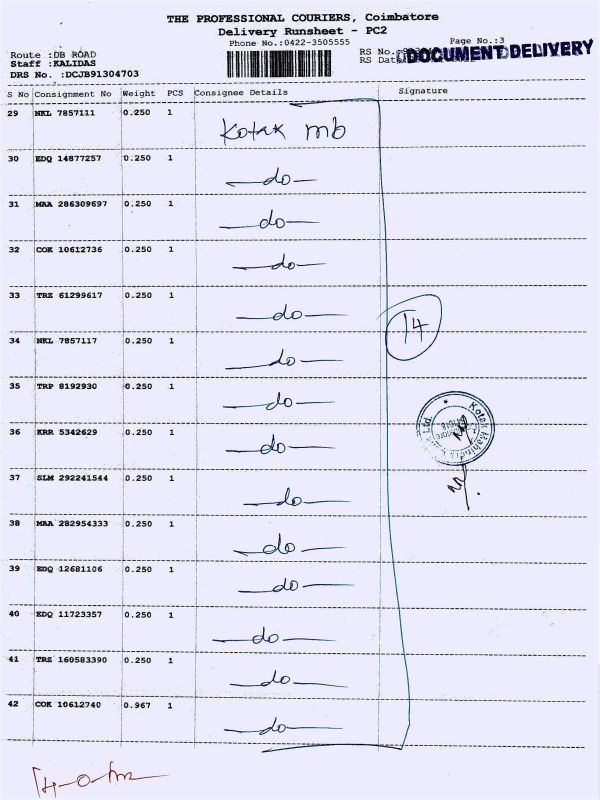 THE PROFESSIONAL COURIERS, Coimbatore
Delivery Runsheet - PC2
Phone No.:0422-3505555
Page No.:3
Route :DB ROAD
RS No.
DOCUMENT DELIVERY
Staff :KALIDAS
RS Dat
DRS No. :DCJB91304703
S No Consignment No Weight PCS Consignee Details Signature
29 NKL 7857111 0.250 1 Kotak mb
30 EDQ 14877257 0.250 1 —do—
31 MAA 286309697 0.250 1 —do—
32 COK 10612736 0.250 1 —do—
33 TRZ 61299617 0.250 1 —do—
14
34 NKL 7857117 0.250 1 —do—
35 TRP 8192930 0.250 1 —do—
Kotak Mahindra Ltd.
36 KRR 5342629 0.250 1 —do—
37 SLM 292241544 0.250 1 —do—
38 MAA 282954333 0.250 1 —do—
39 EDQ 12681106 0.250 1 —do—
40 EDQ 11723357 0.250 1 —do—
41 TRZ 160583390 0.250 1 —do—
42 COK 10612740 0.967 1 —do—